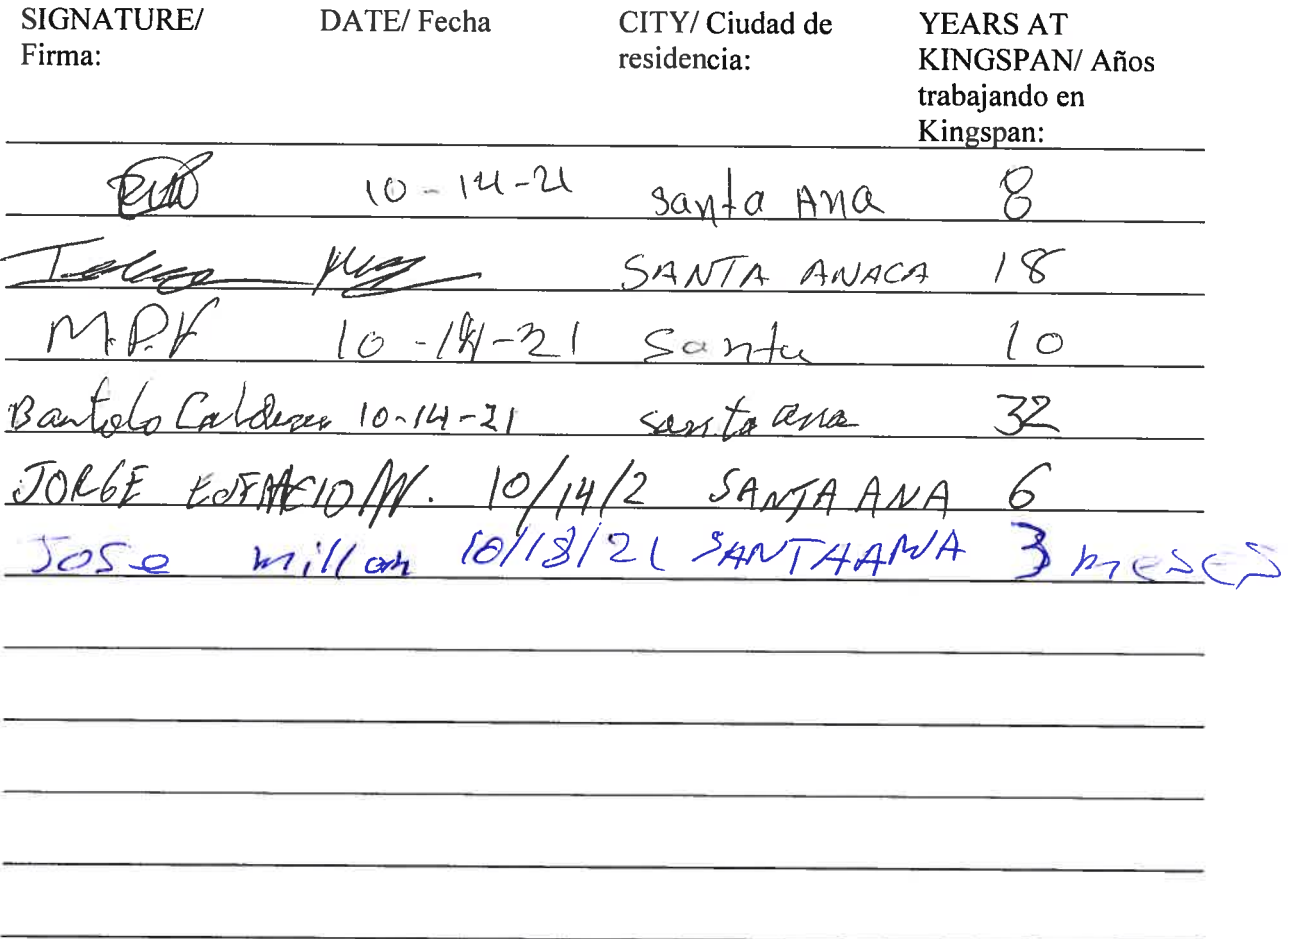 SIGNATURE/ Firma: DATE/ Fecha CITY/ Ciudad de residencia: YEARS AT KINGSPAN/ Años trabajando en Kingspan:
10-14-21 santa Ana 8
SANTA ANA CA 18
M.P.V 10-14-21 Santa 10
Bartolo 10-14-21 santa ana 32
JORGE 10/14/2 SANTA ANA 6
Jose millan 10/18/21 SANTA ANA 3 meses